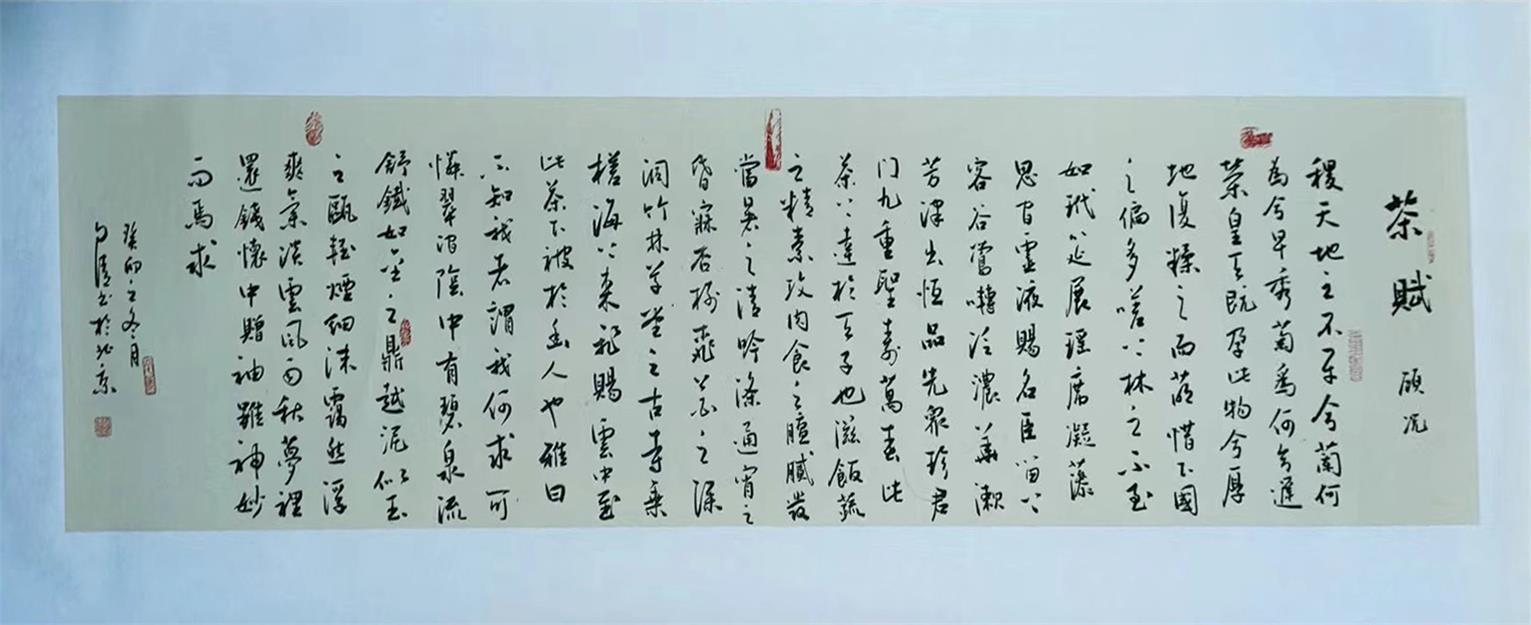 茶賦 顾况
稷天地之不平兮蘭何
為兮早秀菊為何兮遲
榮皇天既孕此物兮厚
地復糅之而萌惜下國
之偏多嗟上林之不至
如玳筵展瑶席凝藻
思間靈液賜名臣留上
容谷鶯囀泛濃華漱
芳津出恒品先眾珍君
门九重聖壽萬春此
茶上達於天子也滋飯蔬
之精素攻肉食之膻膩發
當暑之清吟滌通宵之
昏寐杏樹桃花之深
洞竹林草堂之古寺乘
槎海上來飛賜雲中至
此茶下被於幽人也雅曰
不知我者謂我何求可
憐翠澗陰中有碧泉流
舒鐵如金之鼎越泥似玉
之甌輕煙細沫靄然浮
爽氣淡雲風雨秋夢裡
還錢懷中贈袖雖神妙
而焉求
癸卯之冬月
書於北京